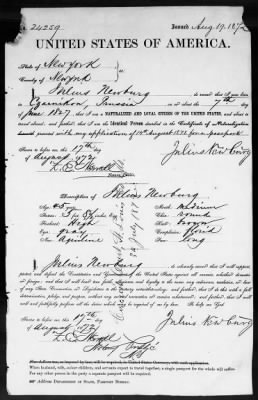 No. 24259 Issued Aug 19. 1872
UNITED STATES OF AMERICA.
State of New York
County of New York
I, Julius Newburg do swear that I was born
in Czarnikow, Prussia on or about the 7th day
of June 1827; that I am a NATURALIZED AND LOYAL CITIZEN OF THE UNITED STATES, and
about to travel abroad; and further that I am the Identical Person described in the Certificate of Naturalization
with my application of for a passport
Sworn to before me this 17th
day of August 1872
Julius Newburg
Notary Public.
Description of Julius Newburg
Age: 45 years Mouth: medium
Stature: 5 feet inches, Eng. Chin: round
Forehead: High Hair: brown
Eyes: gray Complexion: florid
Nose: Aquiline Face: long
I, Julius Newburg do solemnly swear that I will support,
protect and defend the Constitution and Government of the United States against all enemies, whether domestic
or foreign; and that I will bear true faith, allegiance and loyalty to the same, any ordinance, resolution, or law
of any State Convention or Legislature to the contrary notwithstanding; and further, that I do this with a full
determination, pledge and purpose, without any mental reservation or evasion whatsoever; and further, that I will
well and faithfully perform all the duties which may be required of me by law. So help me God!
Sworn to before me this 17th
day of August 1872
Julius Newburg
Notary Public
applicant. When husband, wife, minor children, and servants expect to travel together, a single passport for the whole will suffice.
For any other person in the party a separate passport will be required.
ADDRESS DEPARTMENT OF STATE, PASSPORT BUREAU.